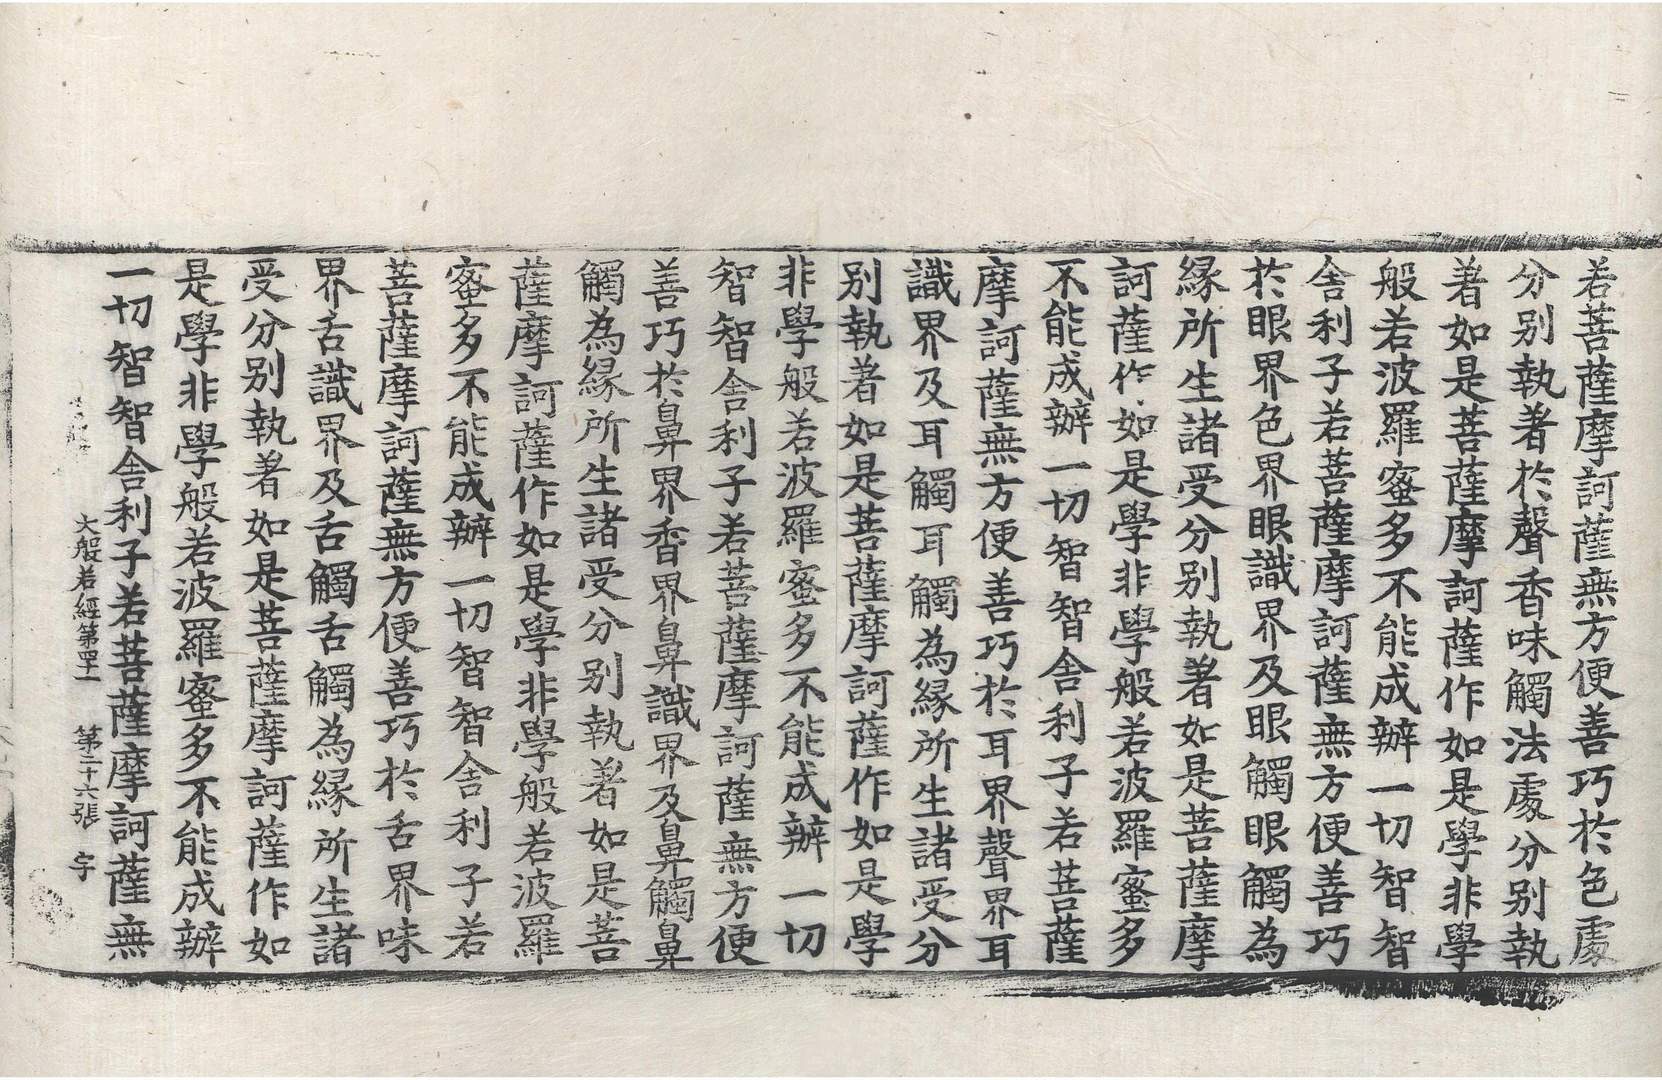 若菩薩摩訶薩無方便善巧於色處
分別執著於聲香味觸法處分別執
著如是菩薩摩訶薩作如是學非學
般若波羅蜜多不能成辦一切智智
舍利子若菩薩摩訶薩無方便善巧
於眼界色界眼識界及眼觸眼觸為
緣所生諸受分別執著如是菩薩摩
訶薩作如是學非學般若波羅蜜多
不能成辦一切智智舍利子若菩薩
摩訶薩無方便善巧於耳界聲界耳
識界及耳觸耳觸為緣所生諸受分
別執著如是菩薩摩訶薩作如是學
非學般若波羅蜜多不能成辦一切
智智舍利子若菩薩摩訶薩無方便
善巧於鼻界香界鼻識界及鼻觸鼻
觸為緣所生諸受分別執著如是菩
薩摩訶薩作如是學非學般若波羅
蜜多不能成辦一切智智舍利子若
菩薩摩訶薩無方便善巧於舌界味
界舌識界及舌觸舌觸為緣所生諸
受分別執著如是菩薩摩訶薩作如
是學非學般若波羅蜜多不能成辦
一切智智舍利子若菩薩摩訶薩無
大般若經第四十一 第二十六張 宇